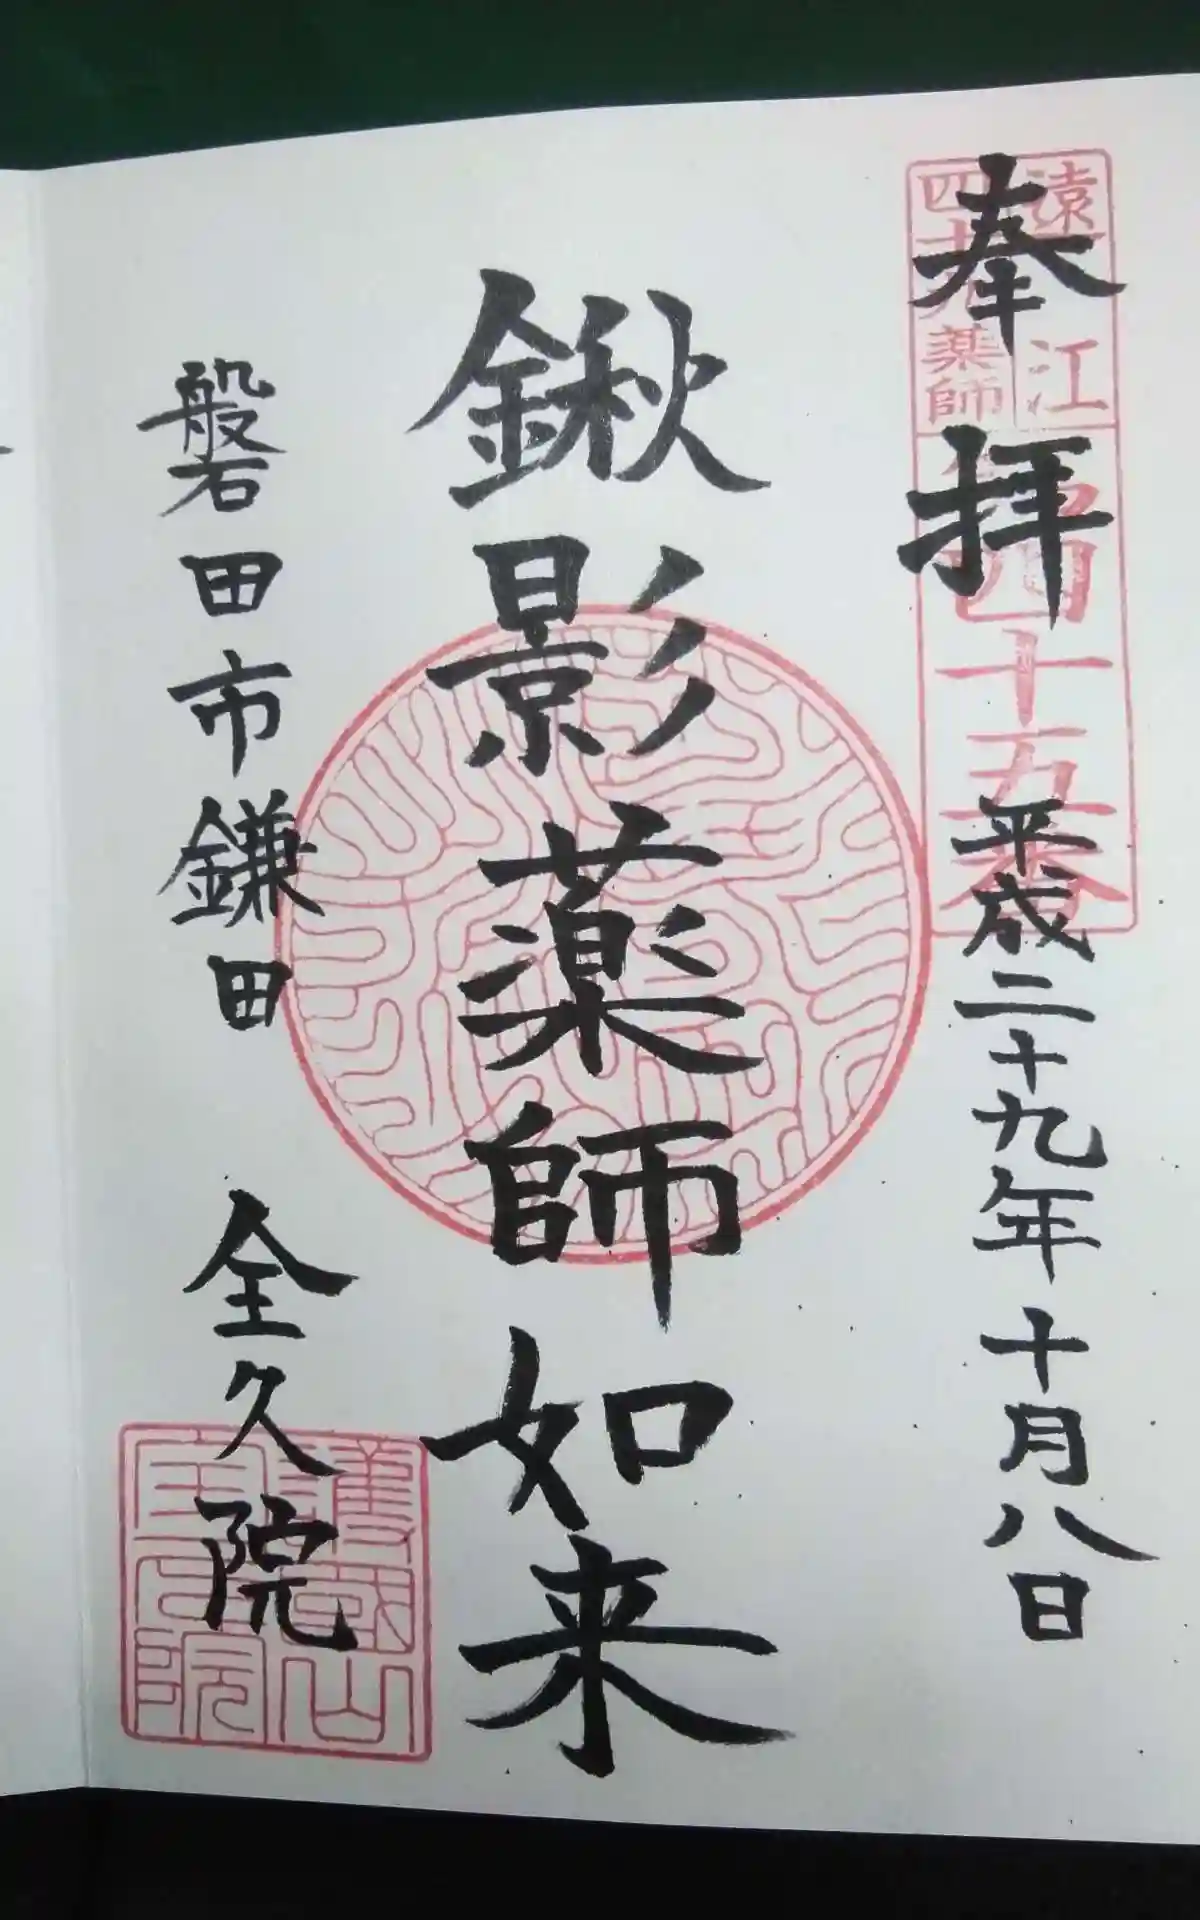 遠江
四十九薬師
第四十五番
奉拝
平成二十九年十月八日
鍬影薬師如来
磐田市鎌田
全久院